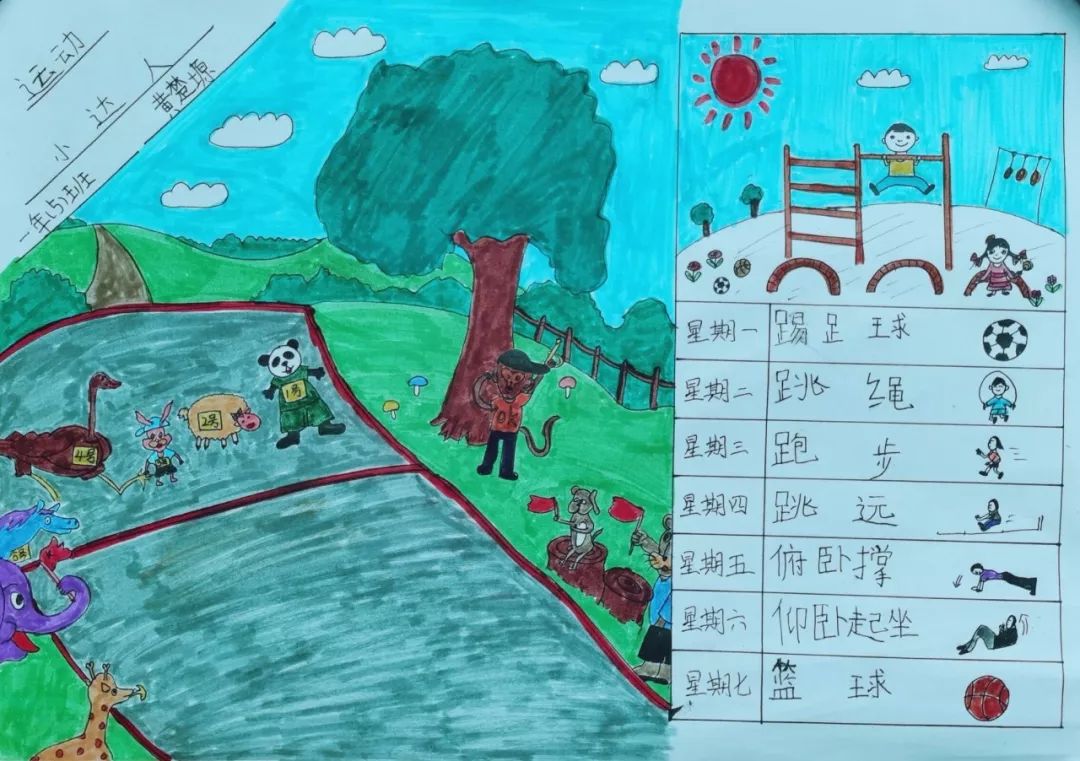 运动
小达人
一年(5)班
黄楚塬
1号
2号
4号
星期一 踢足球
星期二 跳绳
星期三 跑步
星期四 跳远
星期五 俯卧撑
星期六 仰卧起坐
星期七 篮球